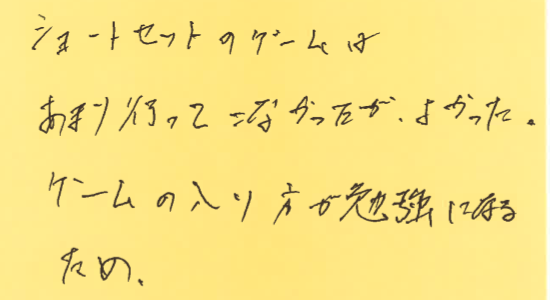 ショートセットのゲームは
あまり行ってこなかったが、よかった。
ゲームの入り方が勉強になる
ため、